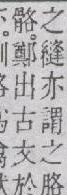 之縫亦謂之胳
骼。鄭出古文於